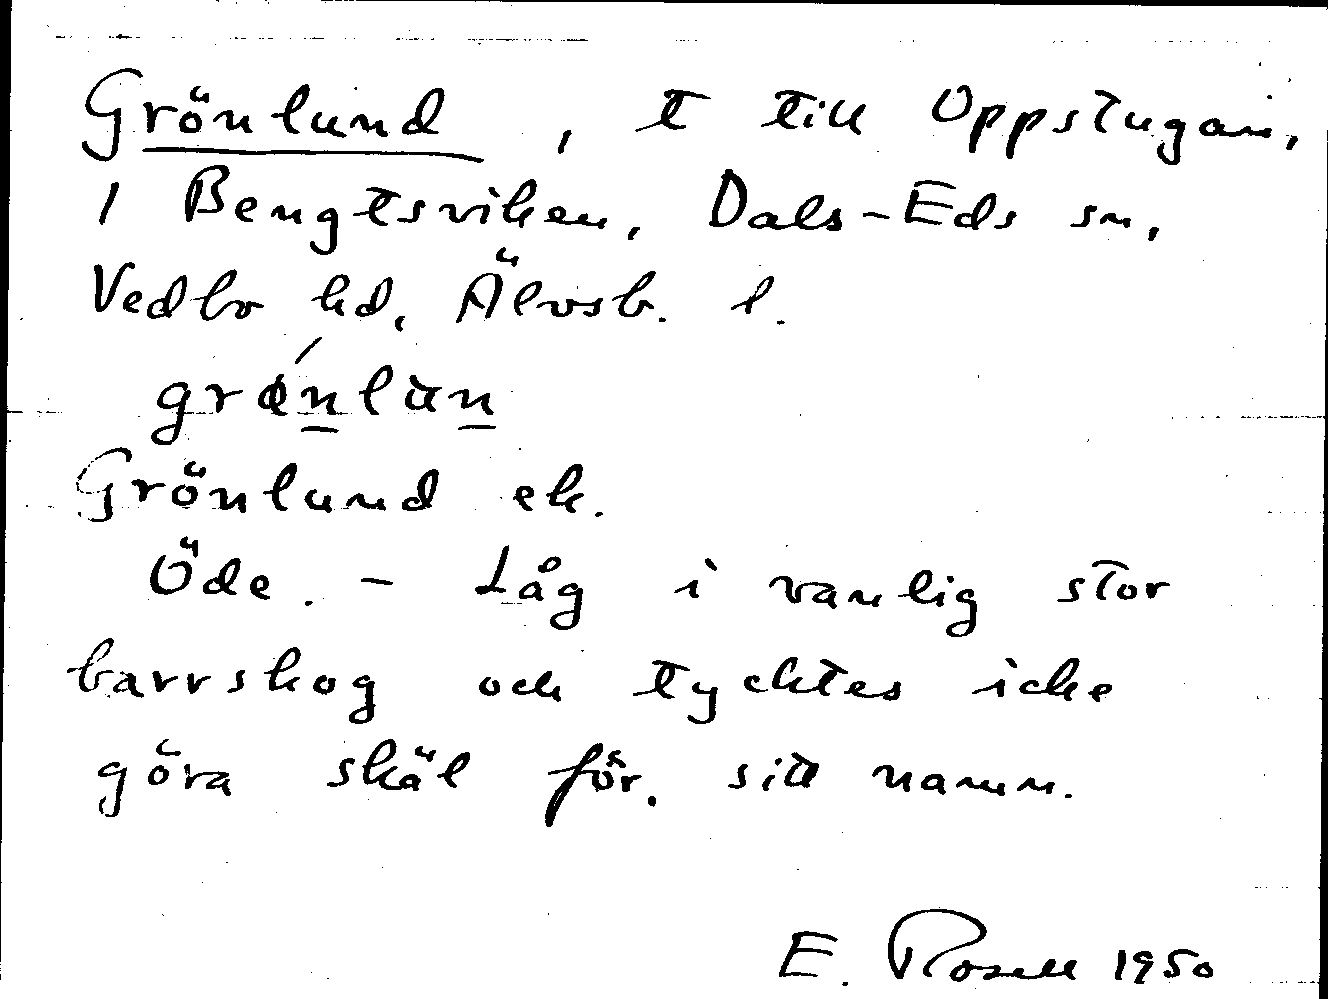 Grönlund, t till Oppstugan,
1 Bengtsviken, Dals-Eds sn,
Vedbo hd, Älvsb. l.
grǿn̲lun̲
Grönlund ek.
Öde. - Låg i vanlig stor
barrskog och tycktes icke
göra skäl för. sitt namn.
E. Rosell 1950